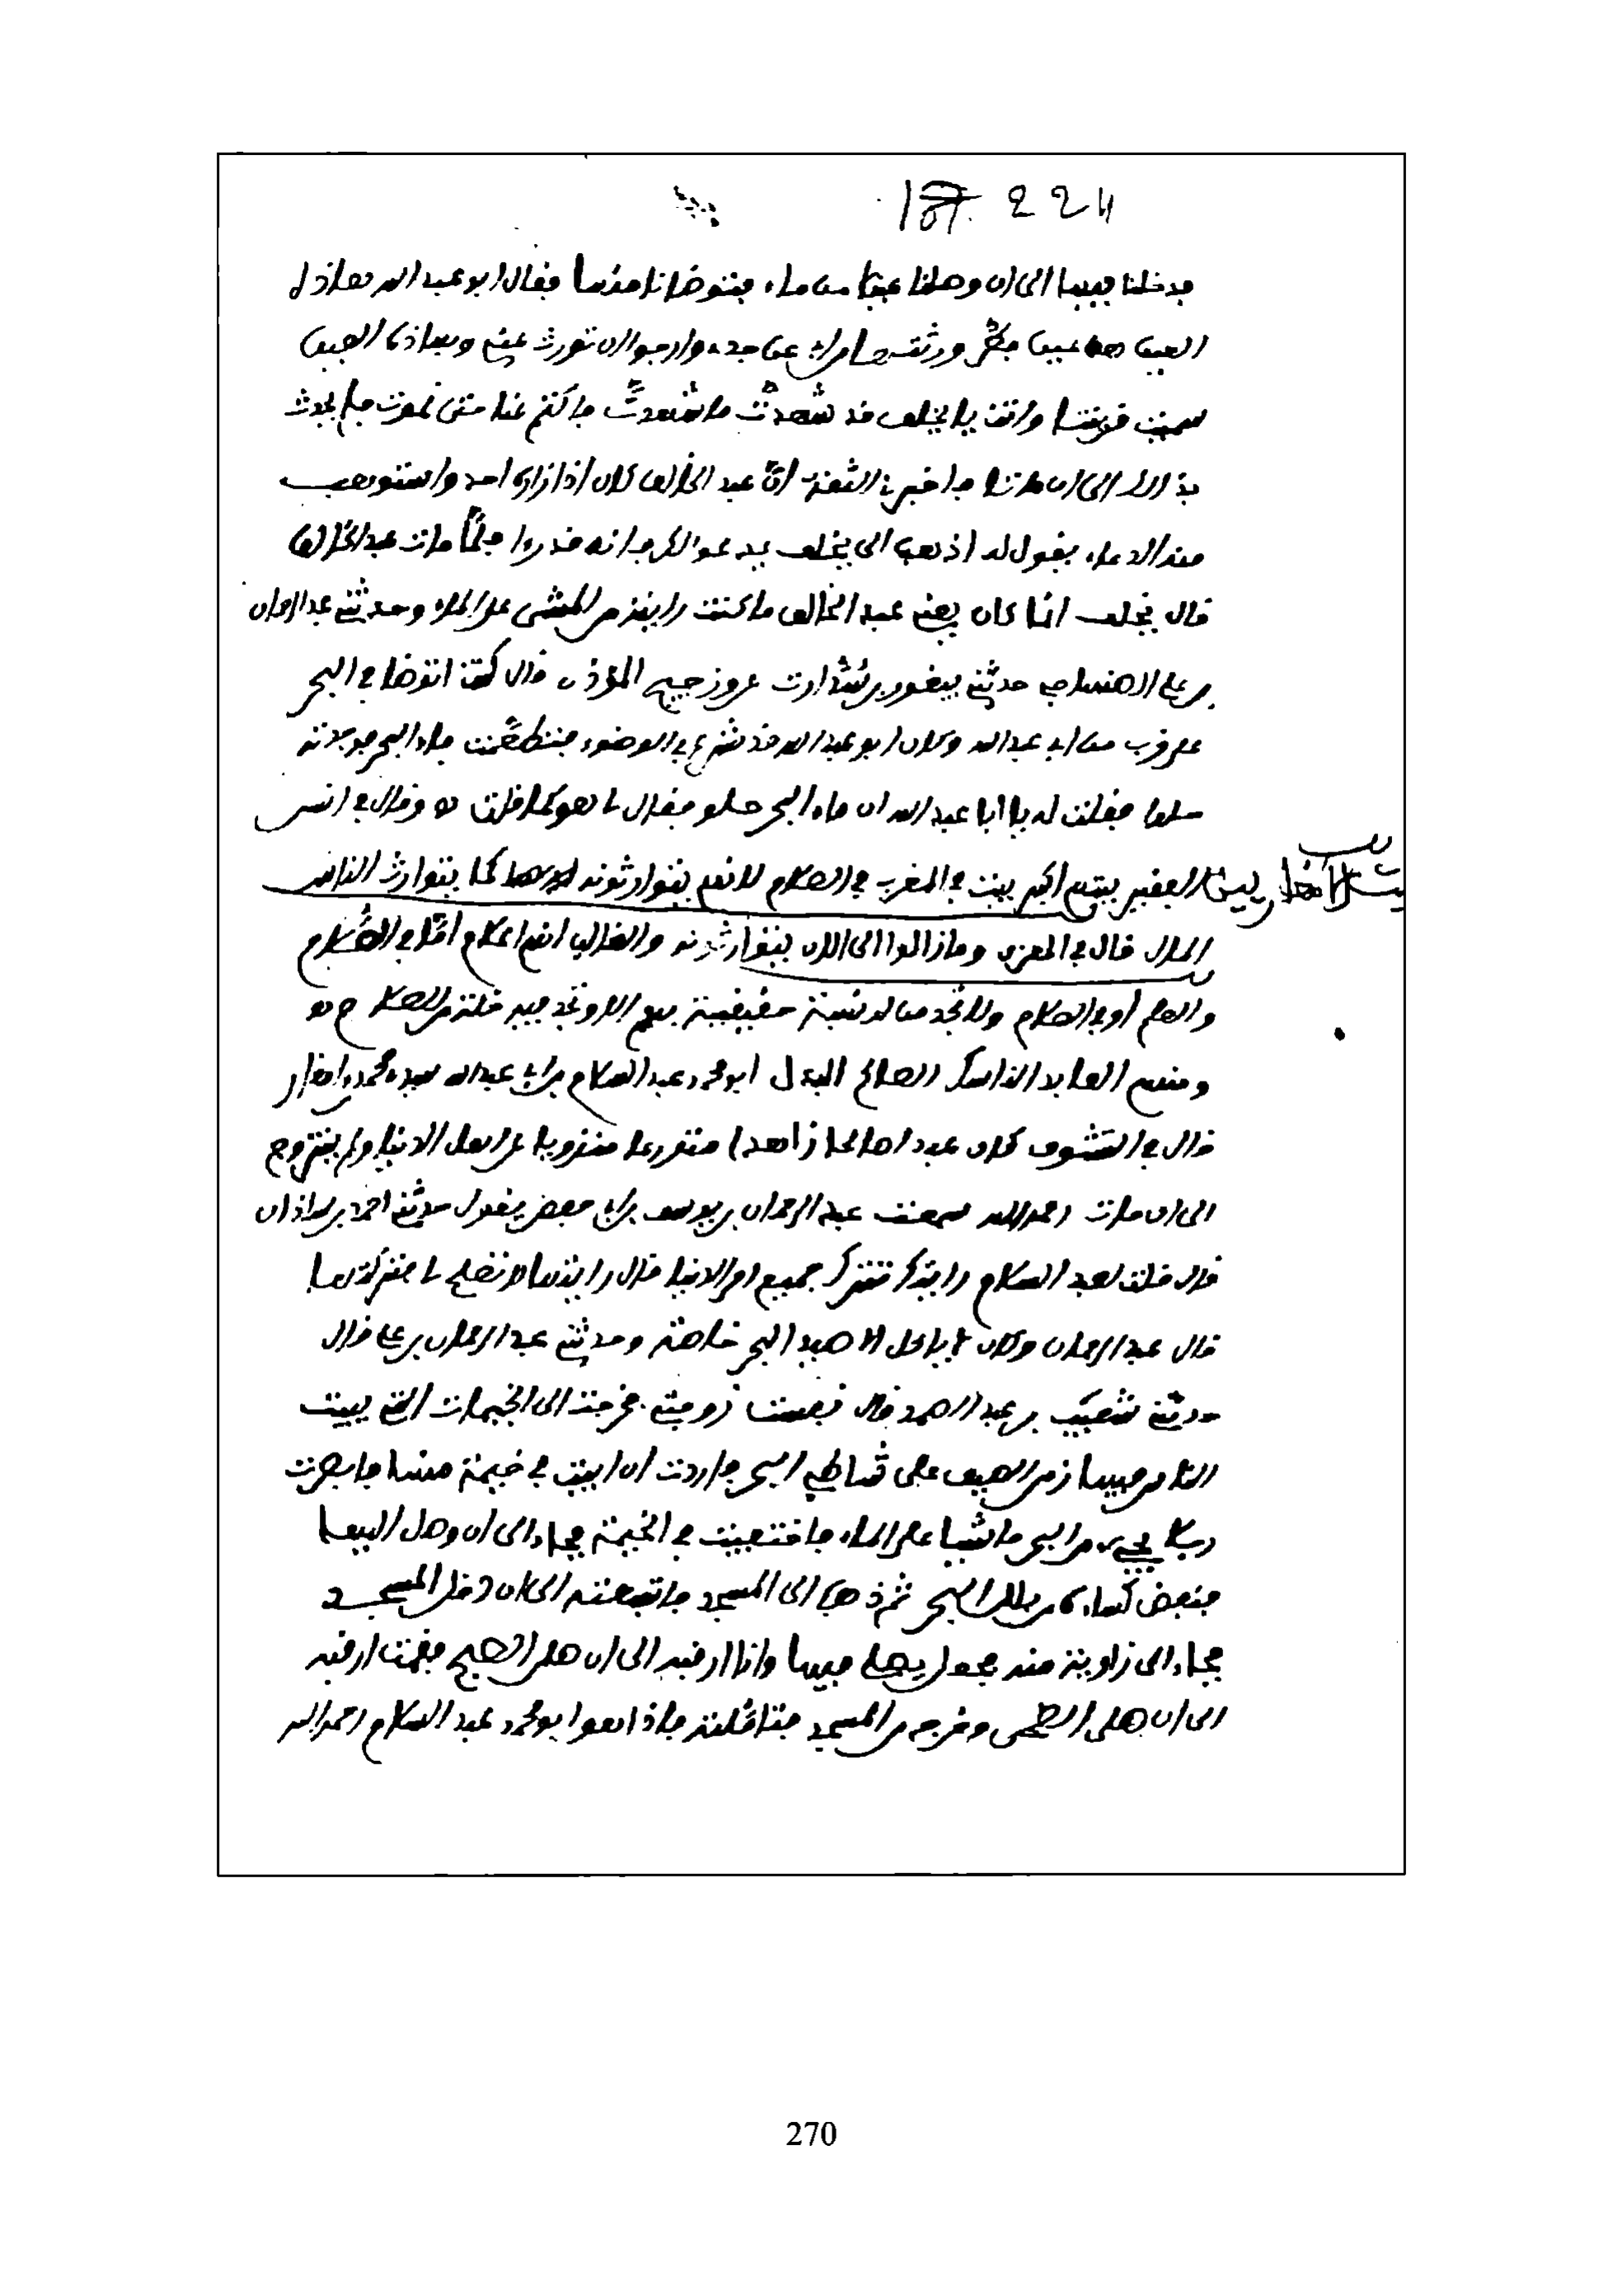 224
فدخلنا فيها الى ان وصلنا عينا من ماء فتوضانا منها فقال ابو عبد الله هذه
العين عين ورثتها من ابي عن جده وارجوا ان تورث عني وبهاذه العين
سميت قريتنا وانت يا يخلف قد شهدت ما شهدت فاكتم عنا متى نموت فلم يحدث
بذالك الى ان ماتا فاخبرني الثقة ان عبد الخالق كان اذا زاره احد واستوهب
منه الدعاء يقول له اذهب الى يخلف يدعو لك فلما مات عبد الخالق
قال يخلف انما كان يعني عبد الخالق ما كنت رايته من المشي على الماء وحدثني عبد الرحمان
بن علي الصنهاجي حدثني يبغور بن عن المؤذن قال كنت اتوضا في البحر
على قرب من ابي عبد الله وكان ابو عبد الله قد شرع في الوضوء فتطعمت ماء البحر فوجدته
حلوا فقلت له يا ابا عبد الله ان ماء البحر حلو فقال لي هو كما قلت وقال في انس
الفقير بيتهم اكبر بيت في المغرب في الصلاح لانهم يتوارثونه كما يتوارث الناس
المال قال في المعزى ومازالوا الى الان يتوارثونه والغالب انهم اعلام اما في الصلاح
والعلم او في الصلاح ولا تجد من له نسبة حقيقية بهم الا وتجد فيه من الصلاح
ومنهم العابد الناسك الصالح البدل ابو محمد عبد السلام بن ابي عبد الله سيد محمد امغار
قال في التشوف كان عبدا صالحا زاهدا متورعا منزويا عن اهل الدنيا ولم يتزوج
الى ان مات رحمه الله سمعت عبد الرحمان بن يوسف بن ابي حفص يقول حدثني احمد بن
قال قلت لعبد السلام رايتك تترك جميع امر الدنيا قال رايتها لا تصلح لي فتركتها
قال عبد الرحمان وكان لا ياكل الا صيد البحر خاصة وحدثني عبد الرحمان بن علي قال
حدثني شعيب بن عبد الصمد قال زوجتي فخرجت الى الخيمات التي يبيت
الناس فيها زمن الصيف على شاطئ البحر فاردت ان ابيت في خيمة منها فابصرت
رجلا يجيء من البحر ماشيا على الماء فاختبيت في الخيمة فجاء الى ان وصل اليها
فنفض كساءه من بلل البحر ثم ذهب الى المسجد فاتبعته الى ان دخل المسجد
فجاء الى زاوية منه فجعل يصلي فيها وانا ارقبه الى ان صلى الصبح فقمت ارقبه
الى ان صلى الضحى وخرج من المسجد فتاملته فاذا هو ابو محمد عبد السلام رحمه الله
270